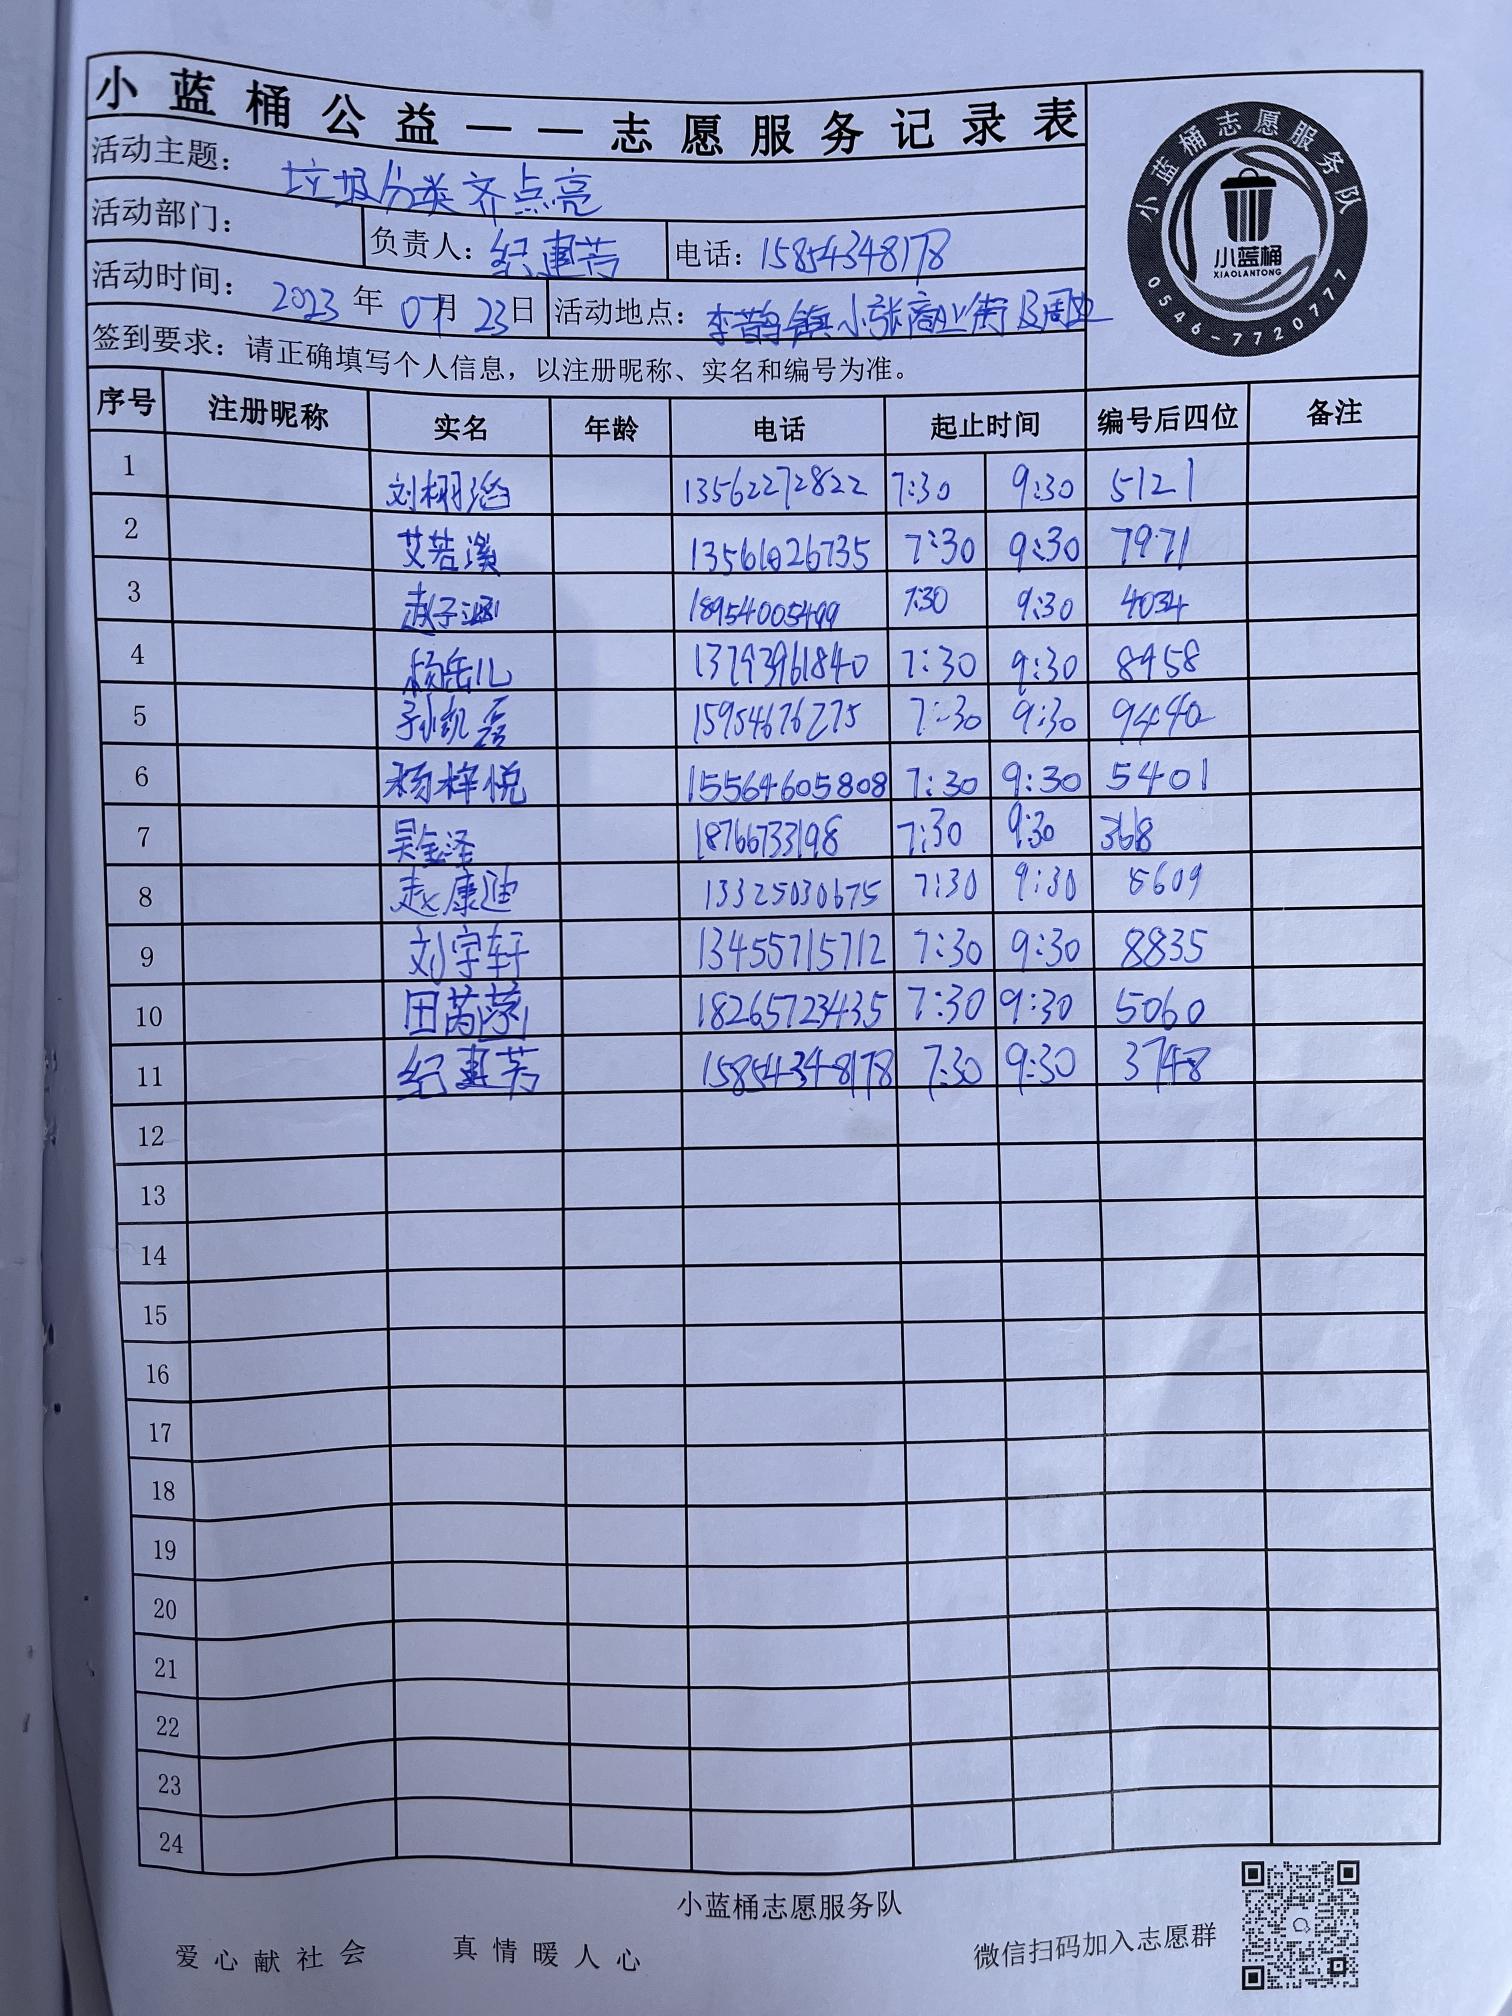 小蓝桶公益——志愿服务记录表
小蓝桶志愿服务队
小蓝桶
XIAOLANTONG
0546-7720777
活动主题： 垃圾分类 齐点亮
活动部门： 负责人：纪建芳 电话：15854348178
活动时间： 2023 年 07 月 23 日 活动地点：李鹊镇小张商业街及周边
签到要求：请正确填写个人信息，以注册昵称、实名和编号为准。
序号 注册昵称 实名 年龄 电话 起止时间 编号后四位 备注
1 刘栩滔 13562272822 7:30 9:30 5121
2 艾若溪 13561026735 7:30 9:30 7971
3 赵子涵 18954005499 7:30 9:30 4034
4 杨岳儿 13793961840 7:30 9:30 8958
5 孙凯磊 15954676275 7:30 9:30 9440
6 杨梓悦 15564605808 7:30 9:30 5401
7 吴金泽 18766733198 7:30 9:30 368
8 赵康迪 13325030675 7:30 9:30 5609
9 刘宇轩 13455715712 7:30 9:30 8835
10 田芮 18265723435 7:30 9:30 5060
11 纪建芳 15854348178 7:30 9:30 3748
12
13
14
15
16
17
18
19
20
21
22
23
24
小蓝桶志愿服务队
爱心献社会 真情暖人心 微信扫码加入志愿群